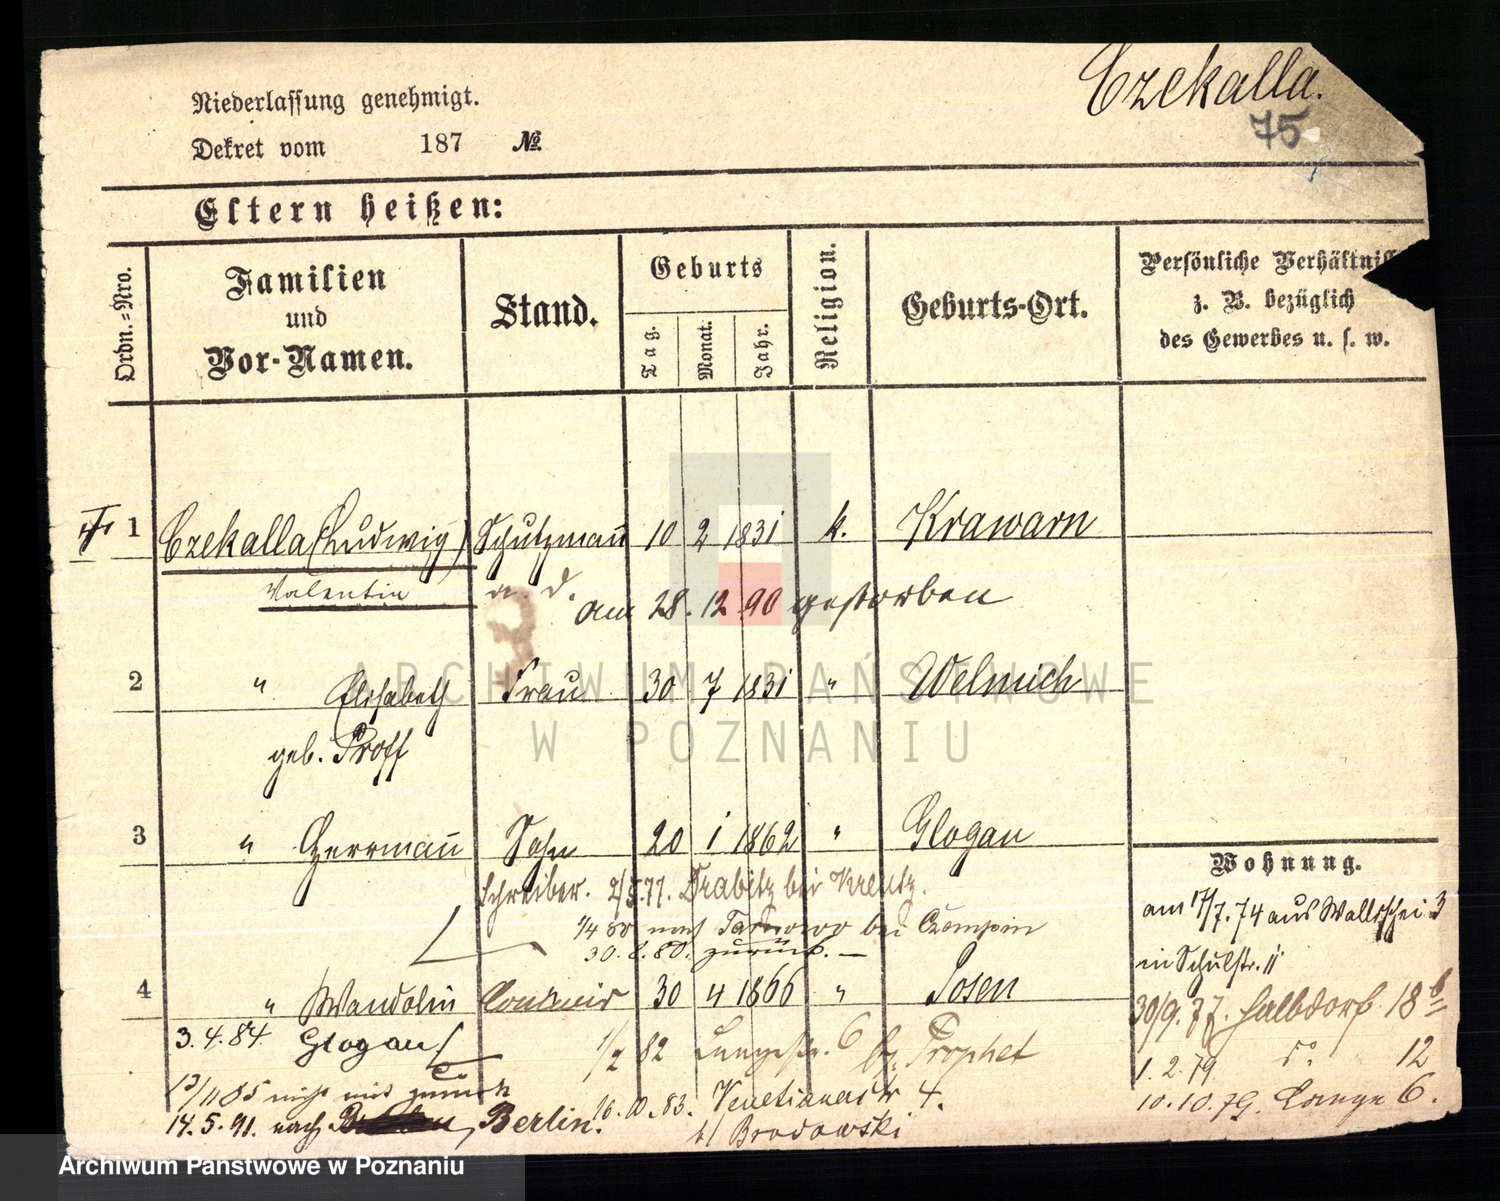 Czekalla.
75
Niederlassung genehmigt.
Dekret vom 187 №
Eltern heißen:
Ordn.=Nro.
Familien und Vor-Namen.
Stand.
Geburts
Tag.
Monat.
Jahr.
Religion.
Geburts-Ort.
Persönliche Verhältniss
z. B. bezüglich
des Gewerbes u. s. w.
1 Czekalla (Ludwig) Schutzmann 10 2 1831 k. Krawarn
Valentin a. D.
am 28. 12. 90 gestorben
2 " Elisabeth Frau 30 7 1831 " Welmich
geb. Proff
3 " Herrmann Sohn 20 1 1862 " Glogau
Schreiber. 2/5.77. Drabitz bei Kreutz.
1/4 80 nach Tarnowo bei Czempin
30. 8. 80. zurück. —
4 " Wandolin 30 4 1866 " Posen
3. 4. 84 Glogau
1/2 82 Langestr. 6 bei Prophet
13/11 85 nicht mit zurück
16. 10. 83. Venetianerstr 4.
b/ Brodowski
14. 5. 91. nach Berlin.
Wohnung.
am 17/7. 74 aus Wallischei 3
in Schulstr. 11
30/9. 77. Halbdorf 18 b
1. 2. 79 do 12
10. 10. 79. Lange 6.
ARCHIWUM PAŃSTWOWE
W POZNANIU
Archiwum Państwowe w Poznaniu